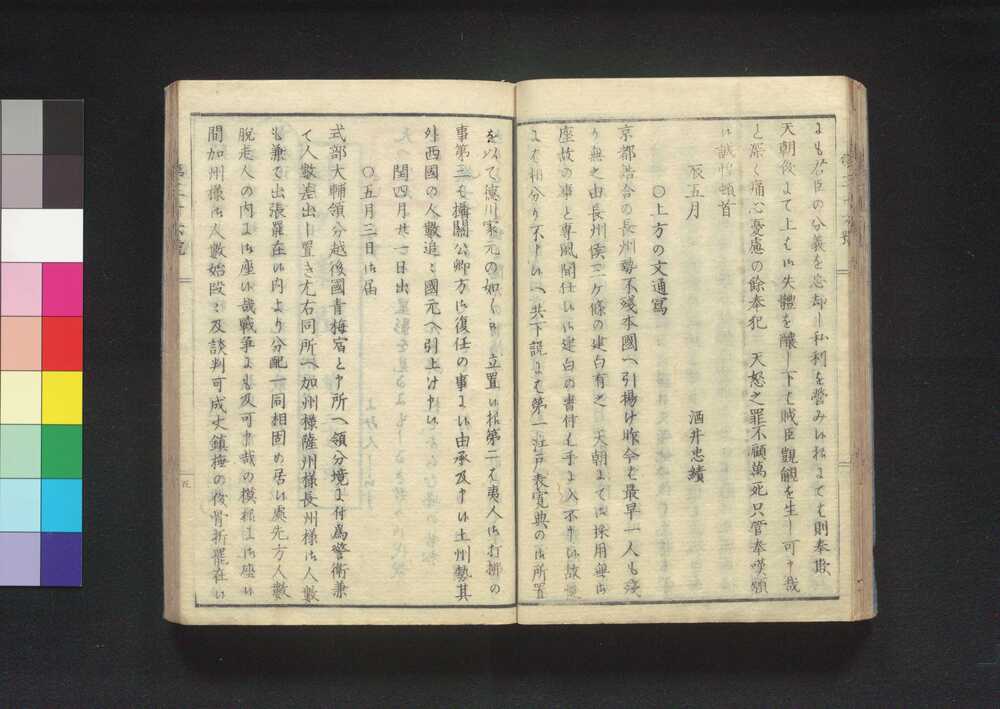 よも君臣の分義を忘却し私利を營みい私よても則奉欺
天朝後よて上もい失體を釀し下も賊臣覬覦を生し可申哉
と深く痛心憂慮の餘奉犯　天怒之罪不顧萬死只管奉嘆願
い誠惶頓首
辰五月　酒井忠績
○上方の文通寫
京都詰合の長州勢不殘本國へ引揚け昨今も最早一人も殘
り無之由長州侯三ケ條の建白有之　天朝よてハ採用無御
座故の事と專風聞仕いへ共建白の書付も手よ入不申い故
よも相分り不申いへ共下説よも第一江戸表寛典の御所置
を以て德川家元の如く御立置い樣第二も夷人御打拂の
事第三も攝關公卿方御復任の事よい由承及申い土州勢其
外西國の人數追〻國元へ引上け申い
閏四月廿一日出
○五月三日御届
式部大輔領分越後國青梅宿と申所へ領分境よ付爲警衛兼
て人數差出し置き尤右同所へ加州樣薩州樣長州樣御人數
も兼て出張罷在い内より分配一同相固め居い處先方人數
脱走人の内よ御座い哉戰爭よも及可申哉の模樣よ御座い
間加州樣御人數始段〻及談判可成丈鎮撫の儀骨折罷在い